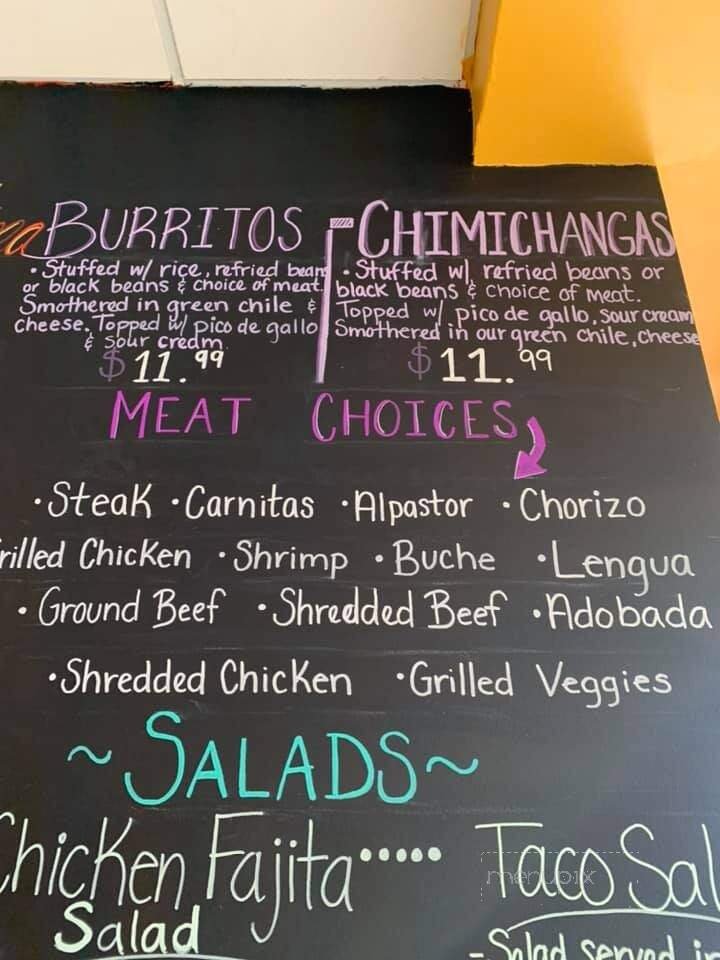 BURRITOS
• Stuffed w/ rice, refried bean
or black beans & choice of meat.
Smothered in green chile &
cheese. Topped w/ pico de gallo
& sour cream
$11.99
CHIMICHANGAS
• Stuffed w/ refried beans or
black beans & choice of meat.
Topped w/ pico de gallo, sour cream
Smothered in our green chile, cheese
$11.99
MEAT CHOICES
• Steak • Carnitas • Alpastor • Chorizo
rilled Chicken • Shrimp • Buche • Lengua
• Ground Beef • Shredded Beef • Adobada
• Shredded Chicken • Grilled Veggies
~ SALADS ~
Chicken Fajita •••••
Salad
Taco Sal
- Salad served in
menupix